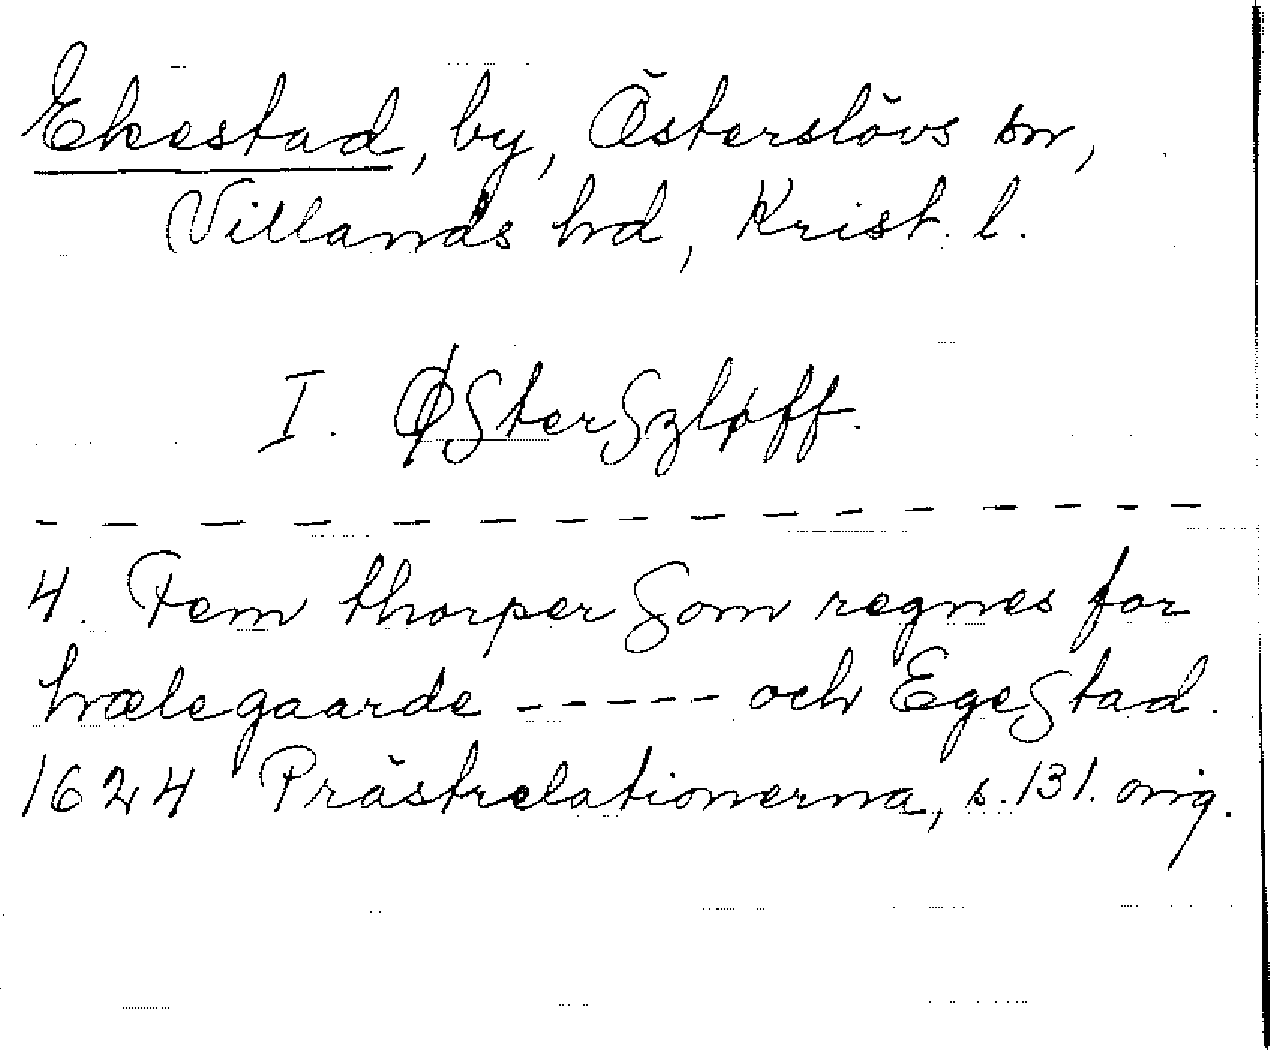 Ekestad, by, Österslövs sn,
Villands hd, Krist. l.
I. ØSterSzløff.
- - - - - - - - - - - - - -
4. Fem thorper Som regnes for
hælegaarde - - - - - och EgeStad.
1624 Prästrelationerna, s. 131. orig.